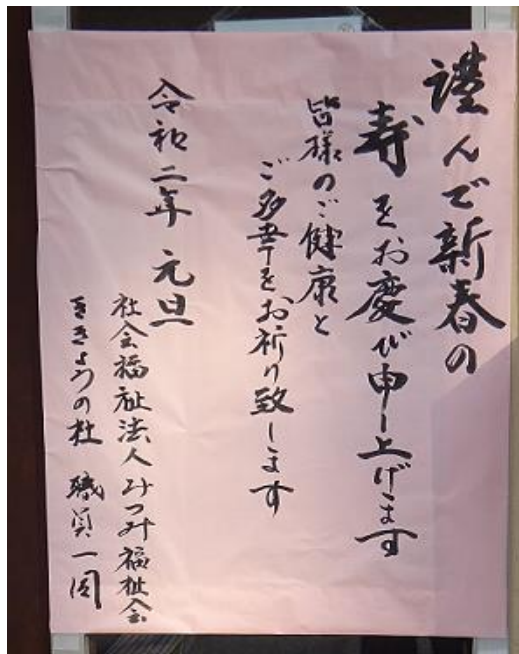 謹んで新春の
寿をお慶び申し上げます
皆様のご健康と
ご多幸をお祈り致します
令和二年 元旦
社会福祉法人みつみ福祉会
ききょうの杜 職員一同